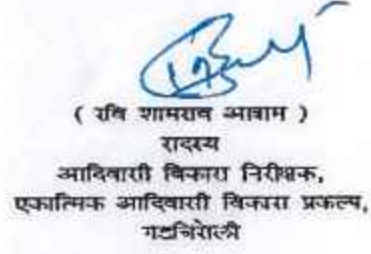 ( रवि शामराव आत्राम )
सदस्य
आदिवासी विकास निरीक्षक,
एकात्मिक आदिवासी विकास प्रकल्प,
गडचिरोली